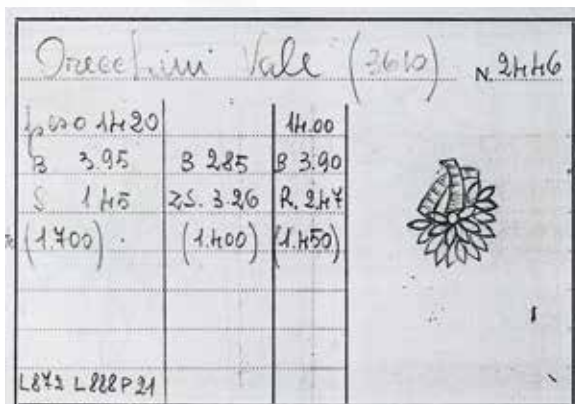 Orecchini Vale (3610) N. 2446
peso 1420 14.00
B 3.95 B 285 B 3.90
S 1.45 ZS. 3.26 R. 2.47
(1.700) (1.400) (1.450)
L872 L828 P21